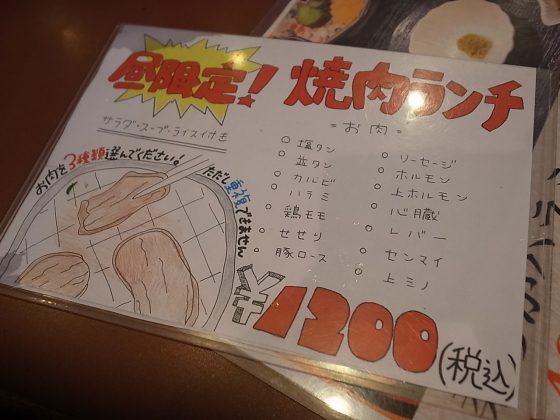 昼限定！ 焼肉ランチ
サラダ・スープ・ライス付き
お肉を3種類選んでください！
ただし重複できません
＝お肉＝
○ 塩タン
○ 並タン
○ カルビ
○ ハラミ
○ 鶏モモ
○ せせり
○ 豚ロース
○ ソーセージ
○ ホルモン
○ 上ホルモン
○ 心臓
○ レバー
○ センマイ
○ 上ミノ
¥1200(税込)